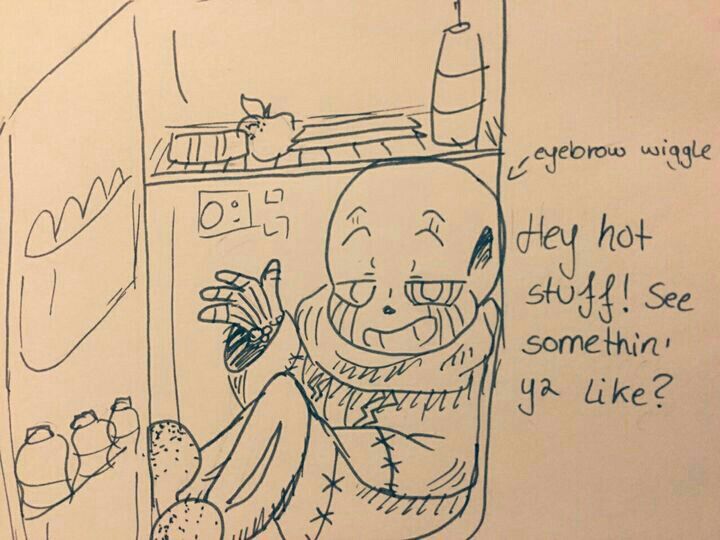 eyebrow wiggle
Hey hot
stuff! See
somethin'
ya like?